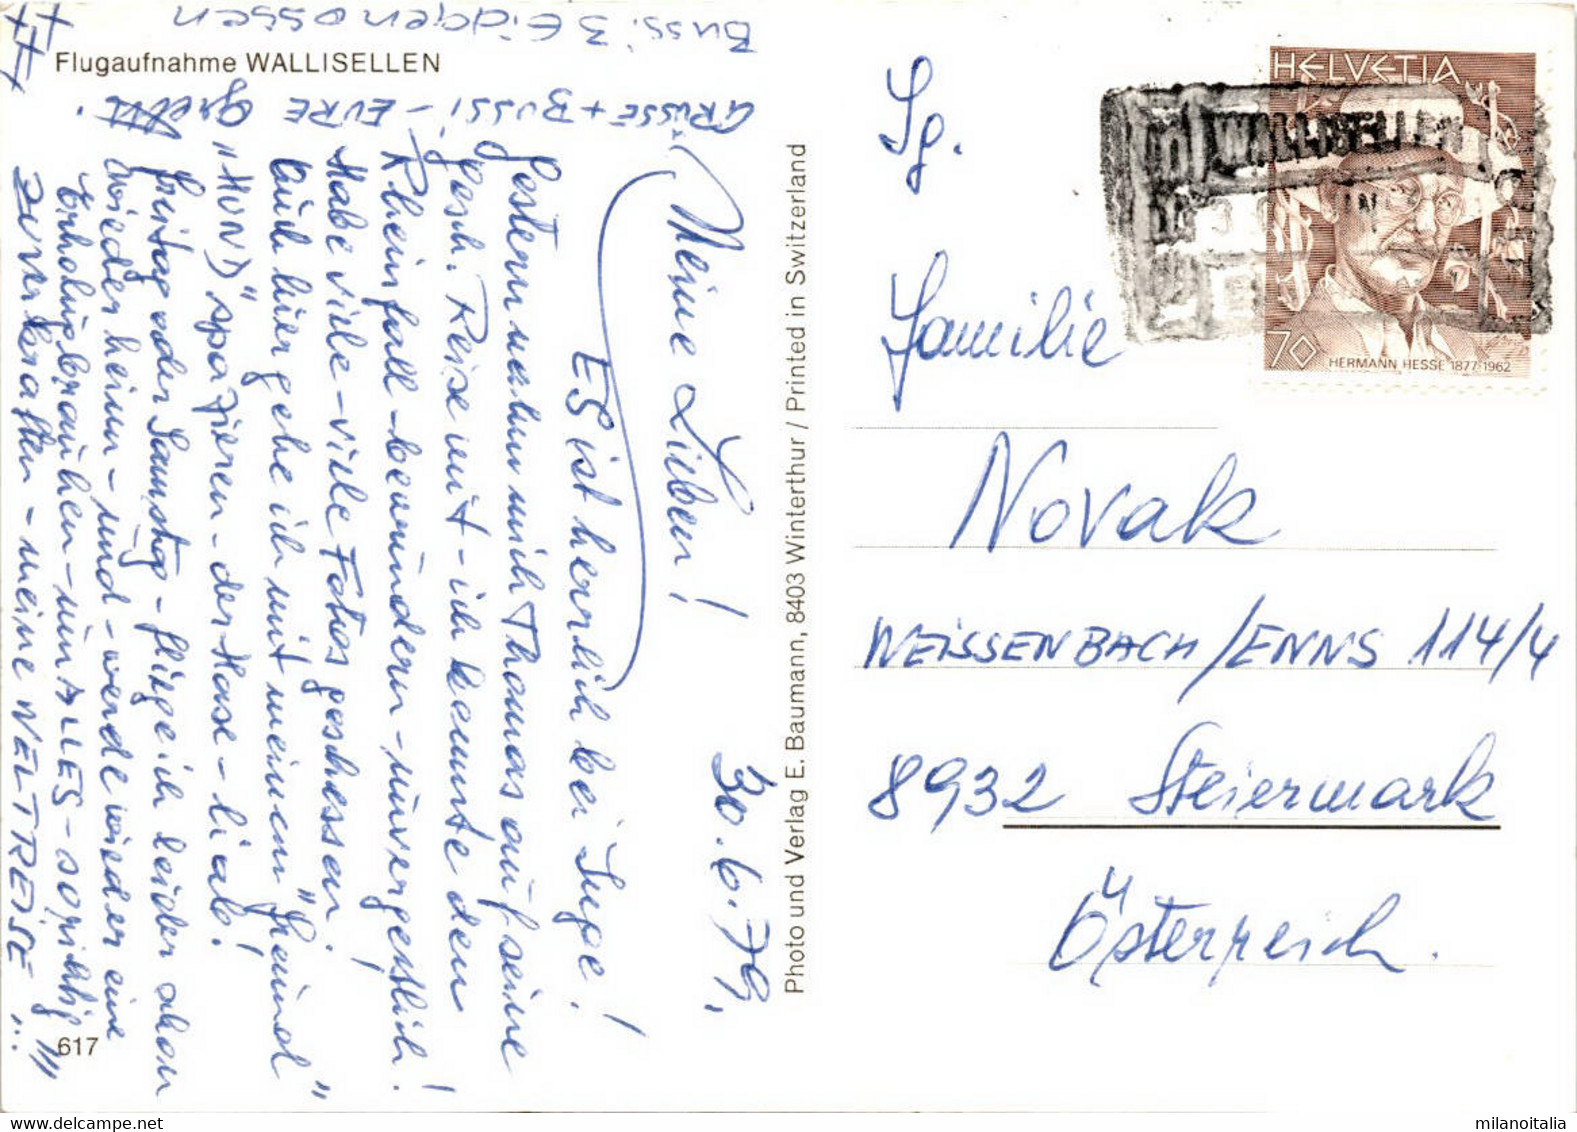 Flugaufnahme WALLISELLEN
30. 6. 79,
Meine Lieben!
ES ist herrlich bei Inge!
Gestern nahm mich Thomas auf seine
gesch. Reise mit – ich konnte den
Rheinfall – bewundern – unvergesslich!
Habe viele – viele Fotos geschossen!
Auch hier gehe ich mit meinem "Freund"
"HUND" spazieren – der Hase – lieb!
Freitag oder Samstag – fliege ich leider schon
wieder heim – und – werde wieder eine
Erholung brauchen – um ALLES – so richtig
zu verkraften – meine WELTREISE...
GRÜSSE + BUSSI – EURE
Bussi 3 Eidgenossen
617
Photo und Verlag E. Baumann, 8403 Winterthur / Printed in Switzerland
HELVETIA
70
HERMANN HESSE 1877-1962
WALLISELLEN
Sg.
Familie
Novak
WEISSENBACH/ENNS 114/4
8932 Steiermark
Österreich.
milanoitalia